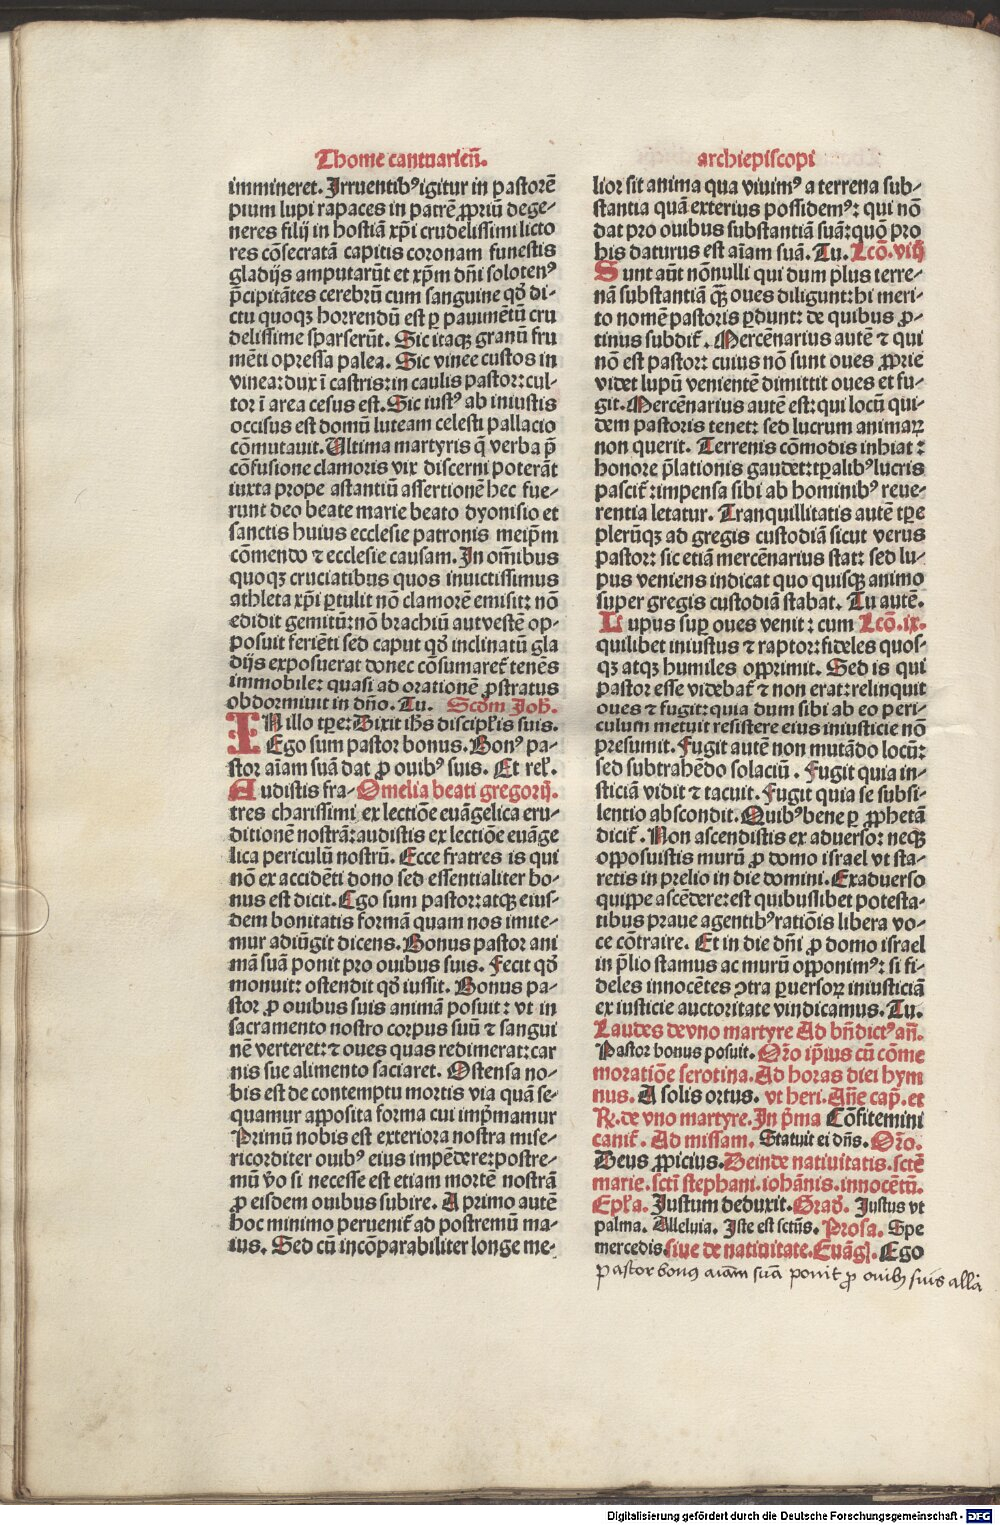 Thome cantuarieñ.
immineret. Irruentibꝰ igitur in pastorē
pium lupi rapaces in patrē ꝓpriū dege-
neres filij in hostiā xp̄i crudelissimi licto
res cōsecratā capitis coronam funestis
gladijs amputarūt et xp̄m dn̄i solotenꝰ
p̄cipitātes cerebrū cum sanguine qd̄ di-
ctu quoqꝫ horrendū est ꝑ pauimētū cru
delissime sparserūt. Sic itaqꝫ granū fru
mēti opressa palea. Sic vinee custos in
vinea: dux ī castris: in caulis pastor: cul-
tor ī area cesus est. Sic iustꝰ ab iniustis
occisus est domū luteam celesti pallacio
cōmutauit. Ultima martyris q̄ verba p̄
cōfusione clamoris vix discerni poterāt
iuxta prope astantiū assertionē hec fue-
runt deo beate marie beato dyonisio et
sanctis huius ecclesie patronis meip̄m
cōmendo ⁊ ecclesie causam. In om̄ibus
quoqꝫ cruciatibus quos inuictissimus
athleta xp̄i ꝑtulit nō clamorē emisit: nō
edidit gemitū: nō brachiū aut vestē op-
posuit feriēti sed caput qd̄ inclinatū gla
dijs exposuerat donec cōsumaret̄ tenēs
immobile: quasi ad orationē ꝓstratus
obdormiuit in dn̄o. Tu. Scd̄m Joh̄.
IN illo tꝑe: Dixit ih̄s discipl̄is suis.
Ego sum pastor bonus. Bonꝰ pa-
stor aīam suā dat ꝓ ouibꝰ suis. Et rel̄.
Audistis fra- Omelia beati gregorij.
tres charissimi ex lectiōe euāgelica eru-
ditionē nostrā: audistis ex lectiōe euāge
lica periculū nostrū. Ecce fratres is qui
nō ex accidēti dono sed essentialiter bo-
nus est dicit. Ego sum pastor: atqꝫ eius-
dem bonitatis formā quam nos imite-
mur adiūgit dicens. Bonus pastor ani
mā suā ponit pro ouibus suis. Fecit qd̄
monuit: ostendit qd̄ iussit. Bonus pa-
stor ꝓ ouibus suis animā posuit: vt in
sacramento nostro corpus suū ⁊ sangui
nē verteret: ⁊ oues quas redimerat: car
nis sue alimento saciaret. Ostensa no-
bis est de contemptu mortis via quā se-
quamur apposita forma cui imp̄mamur
Primū nobis est exteriora nostra mise-
ricorditer ouibꝰ eius impēdere: postre-
mū v̄o si necesse est etiam mortē nostrā
ꝓ eisdem ouibus subire. A primo autē
hoc minimo peruenit̄ ad postremū ma-
ius. Sed cū incōparabiliter longe me-
archiepiscopi
lior sit anima qua viuimꝰ a terrena sub-
stantia quā exterius possidemꝰ: qui nō
dat pro ouibus substantiā suā: quō pro
his daturus est aīam suā. Tu. Lcō. viij
Sunt aūt nōnulli qui dum plus terre-
nā substantiā qꝫ oues diligunt: hi meri-
to nomē pastoris ꝑdunt: de quibus ꝓ-
tinus subdit̄. Mercēnarius autē ⁊ qui
nō est pastor: cuius nō sunt oues ꝓprie
videt lupū venientē dimittit oues et fu-
git. Mercēnarius autē est: qui locū qui-
dem pastoris tenet: sed lucrum animaꝝ
non querit. Terrenis cōmodis inhiat:
honore p̄lationis gaudet: tꝑalibꝰ lucris
pascit̄: impensa sibi ab hominibꝰ reue-
rentia letatur. Tranquillitatis autē tꝑe
plerūqꝫ ad gregis custodiā sicut verus
pastor: sic etiā mercēnarius stat: sed lu-
pus veniens indicat quo quisqꝫ animo
super gregis custodiā stabat. Tu autē.
Lupus suꝑ oues venit: cum Lcō. ix.
quilibet iniustus ⁊ raptor: fideles quos-
qꝫ atqꝫ humiles opprimit. Sed is qui
pastor esse videbat̄ ⁊ non erat: relinquit
oues ⁊ fugit: quia dum sibi ab eo peri-
culum metuit resistere eius iniusticie nō
presumit. Fugit autē non mutādo locū:
sed subtrahēdo solaciū. Fugit quia in-
sticiā vidit ⁊ tacuit. Fugit quia se subsi-
lentio abscondit. Quibꝰ bene ꝑ ꝓphetā
dicit̄. Non ascendistis ex aduerso: neqꝫ
opposuistis murū ꝓ domo israel vt sta-
retis in prelio in die domini. Exaduerso
quippe ascēdere: est quibuslibet potesta-
tibus praue agentibꝰ ratiōis libera vo-
ce cōtraire. Et in die dn̄i ꝓ domo israel
in p̄lio stamus ac murū opponimꝰ: si fi-
deles innocētes ꝯtra ꝑuersoꝝ iniusticiā
ex iusticie auctoritate vindicamus. Tu.
Laudes de vno martyre Ad bn̄dictꝰ an̄.
Pastor bonus posuit. Orō ip̄ius cū cōme
moratiōe serotina. Ad horas diei hym
nus. A solis ortus. vt heri. An̄e cap̄. et
℟. de vno martyre. In p̄ma Cōfitemini
canit̄. Ad missam. Statuit ei dn̄s. Orō.
Deus ꝓpicius. Deinde natiuitatis. sctē
marie. sctī stephani. iohānis. innocētū.
Epl̄a. Justum deduxit. Grad̄. Justus vt
palma. Alleluia. Iste est sctūs. Prosa. Spe
mercedis. siue de natiuitate. Euāgl̄. Ego
pastor bonꝰ aīam suā ponit ꝓ ouibꝫ suis alla
Digitalisierung gefördert durch die Deutsche Forschungsgemeinschaft - DFG